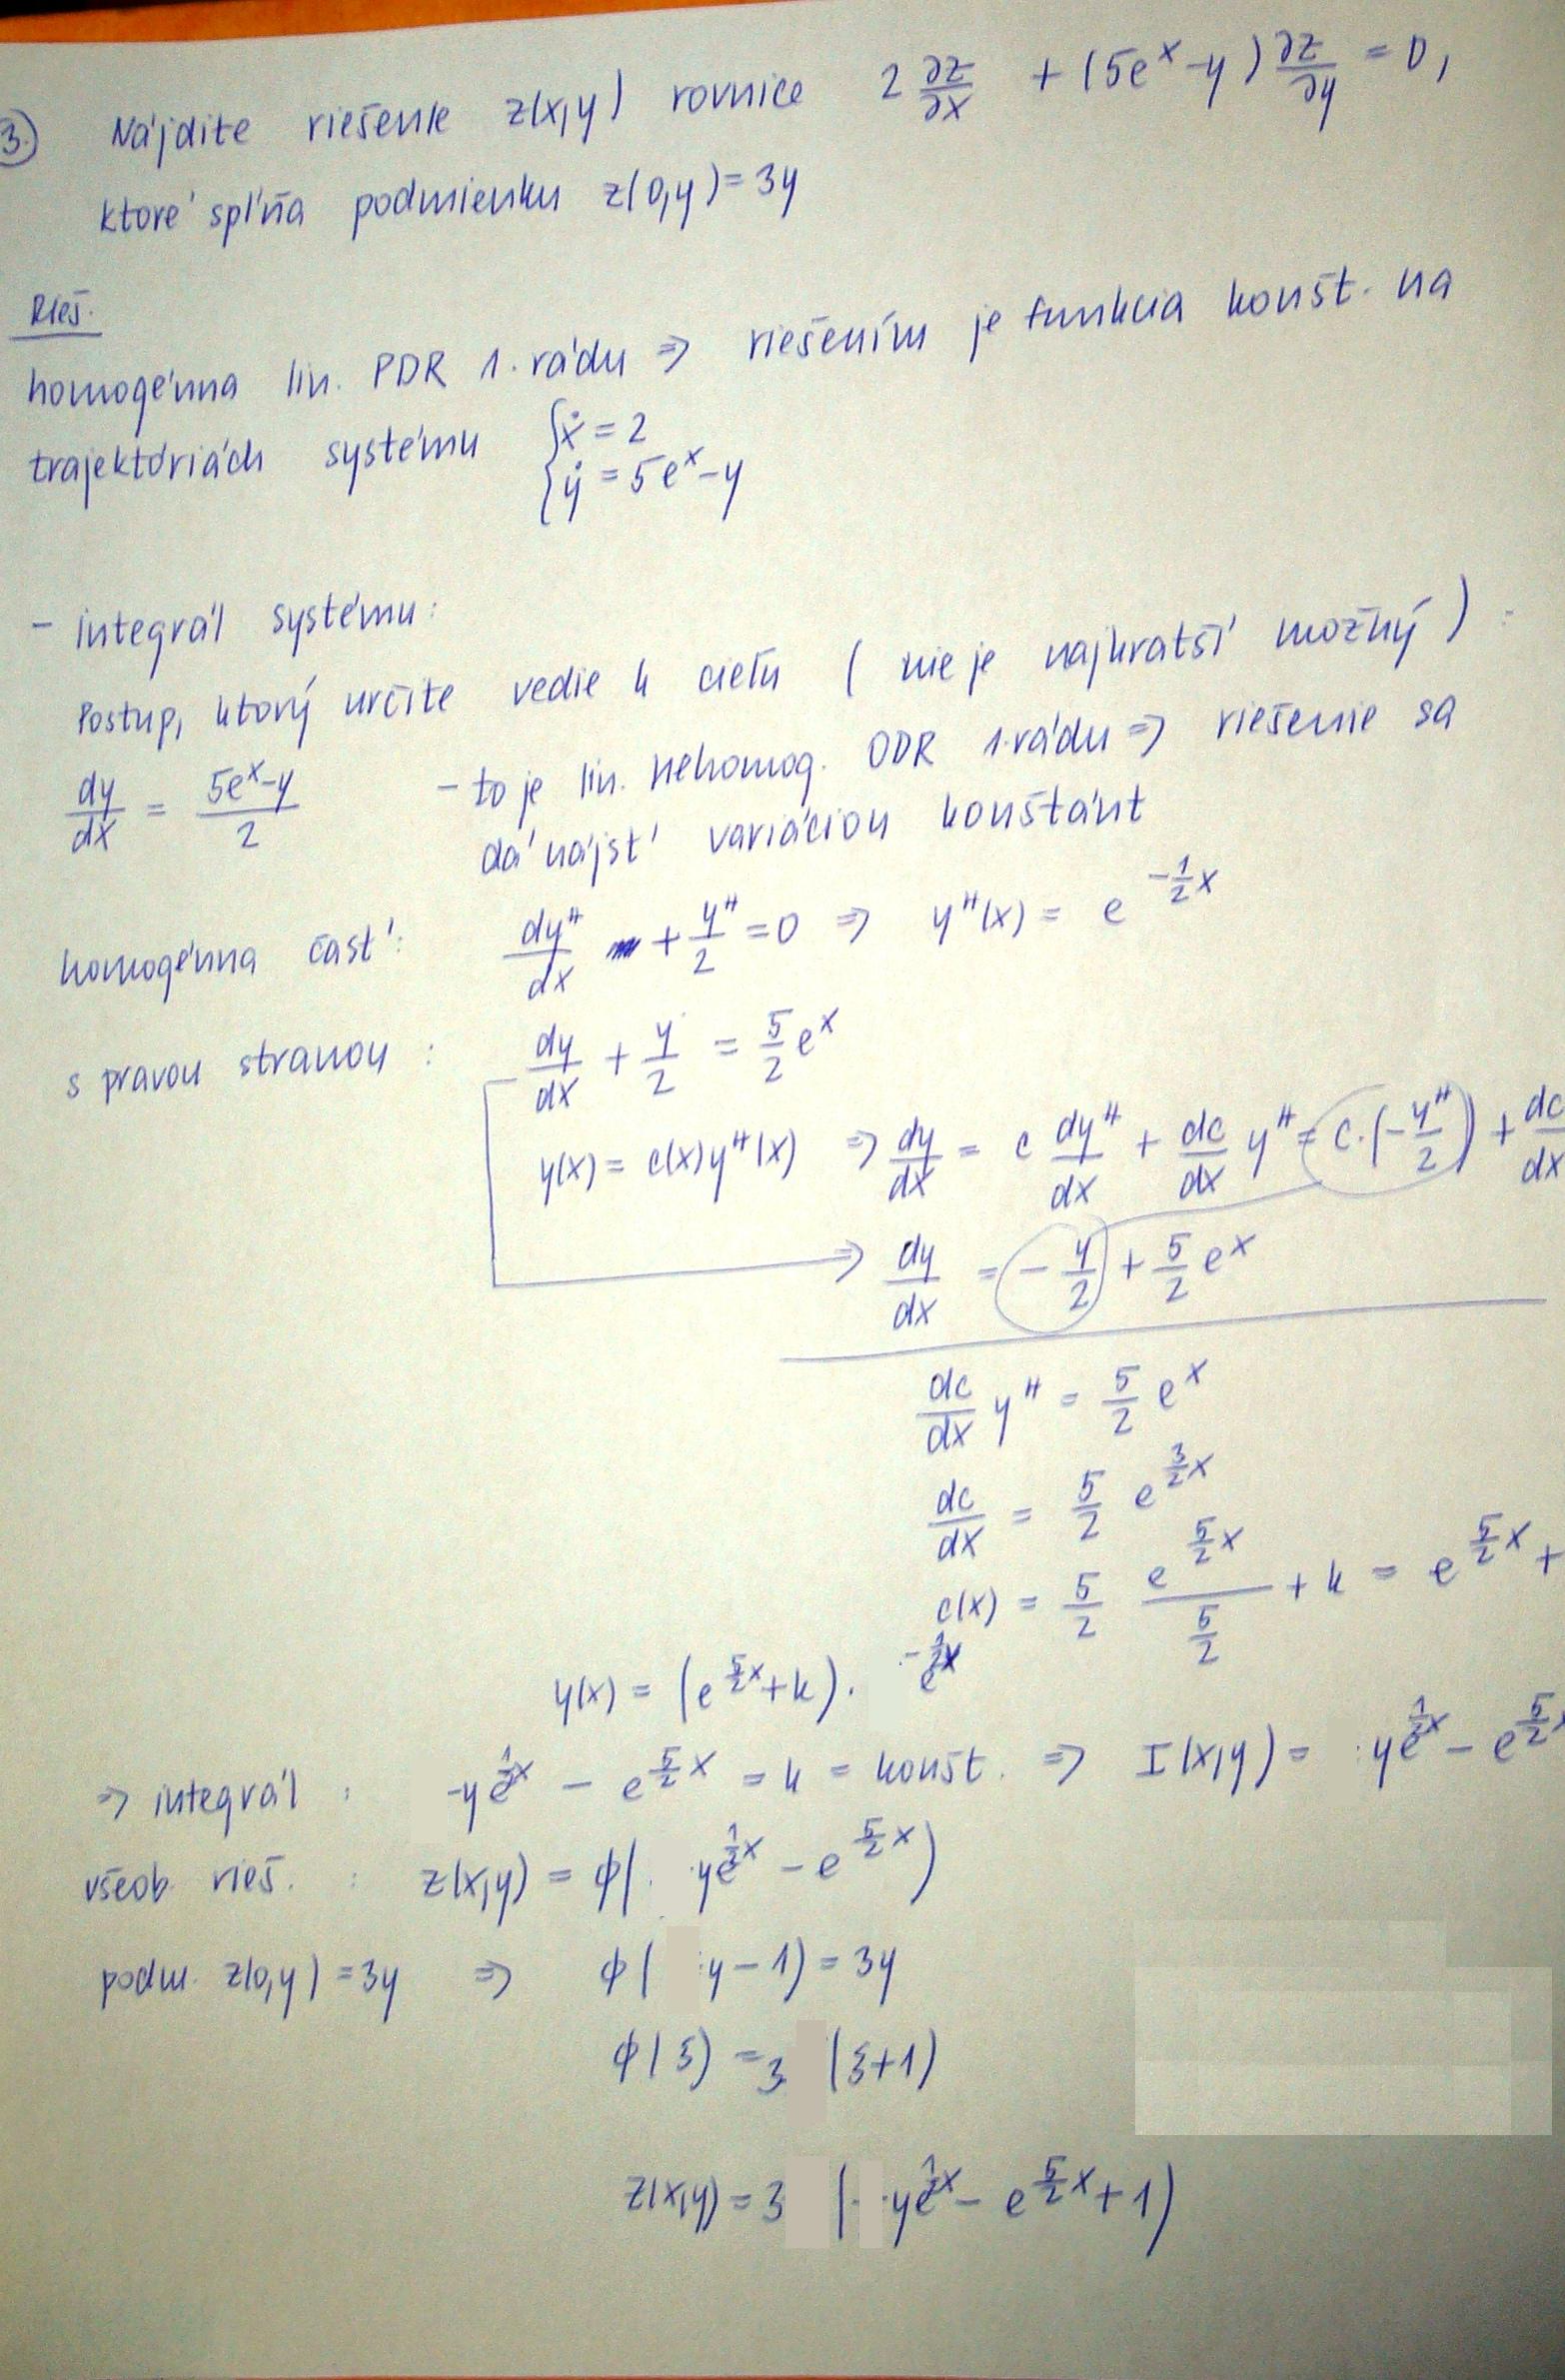 3.) Nájdite riešenie z(x,y) rovnice 2 ∂z/∂x + (5e^x - y) ∂z/∂y = 0,
ktoré spĺňa podmienku z(0,y) = 3y
Rieš.
homogénna lin. PDR 1. rádu ⇒ riešením je funkcia konšt. na
trajektóriách systému { ẋ = 2
ẏ = 5e^x - y
- integrál systému:
Postup, ktorý určite vedie k cieľu ( nie je najkratší možný ) :
dy/dx = (5e^x - y)/2 - to je lin. nehomog. ODR 1. rádu ⇒ riešenie sa
dá nájsť variáciou konštánt
homogénna časť: dy^H/dx + y^H/2 = 0 ⇒ y^H(x) = e^(-1/2 x)
s pravou stranou : dy/dx + y/2 = 5/2 e^x
y(x) = c(x) y^H(x) ⇒ dy/dx = c dy^H/dx + dc/dx y^H = c·(-y^H/2) + dc/dx
⇒ dy/dx = - y/2 + 5/2 e^x
dc/dx y^H = 5/2 e^x
dc/dx = 5/2 e^(3/2 x)
c(x) = 5/2 e^(5/2 x)/(5/2) + k = e^(5/2 x) +
y(x) = (e^(5/2 x) + k) . e^(-1/2 x)
⇒ integrál : -y e^(1/2 x) - e^(5/2 x) = k = konšt. ⇒ I(x,y) = y e^(1/2 x) - e^(5/2 x)
všeob. rieš. : z(x,y) = ϕ( y e^(1/2 x) - e^(5/2 x) )
podm. z(0,y) = 3y ⇒ ϕ( y - 1) = 3y
ϕ(ξ) = 3 (ξ+1)
z(x,y) = 3 ( y e^(1/2 x) - e^(5/2 x) + 1)